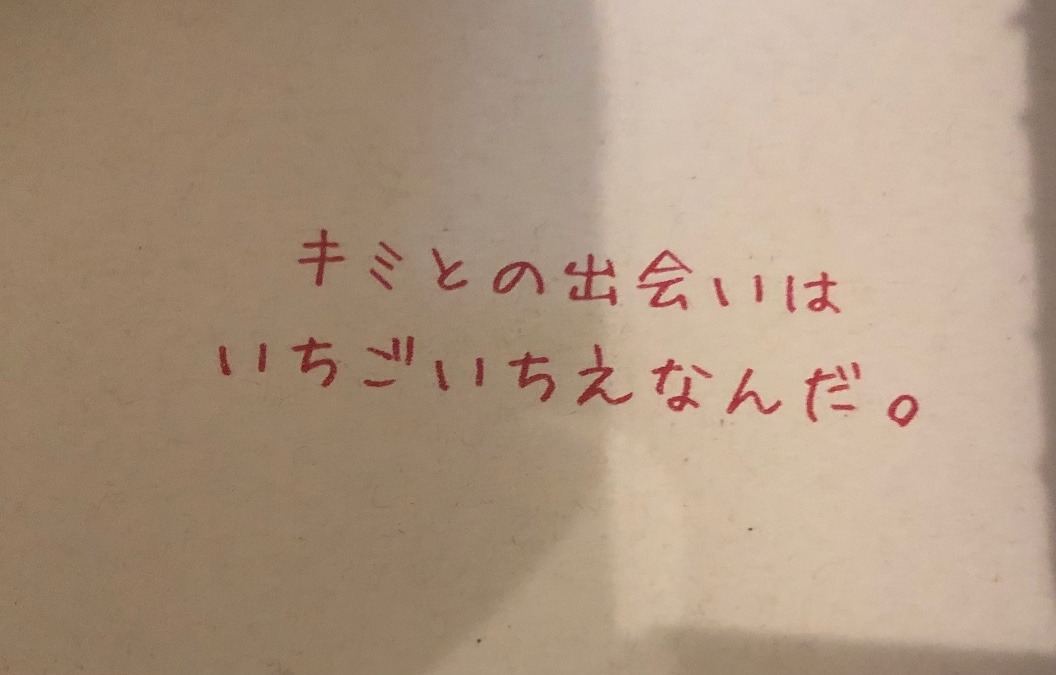 キミとの出会いは
いちごいちえなんだ。